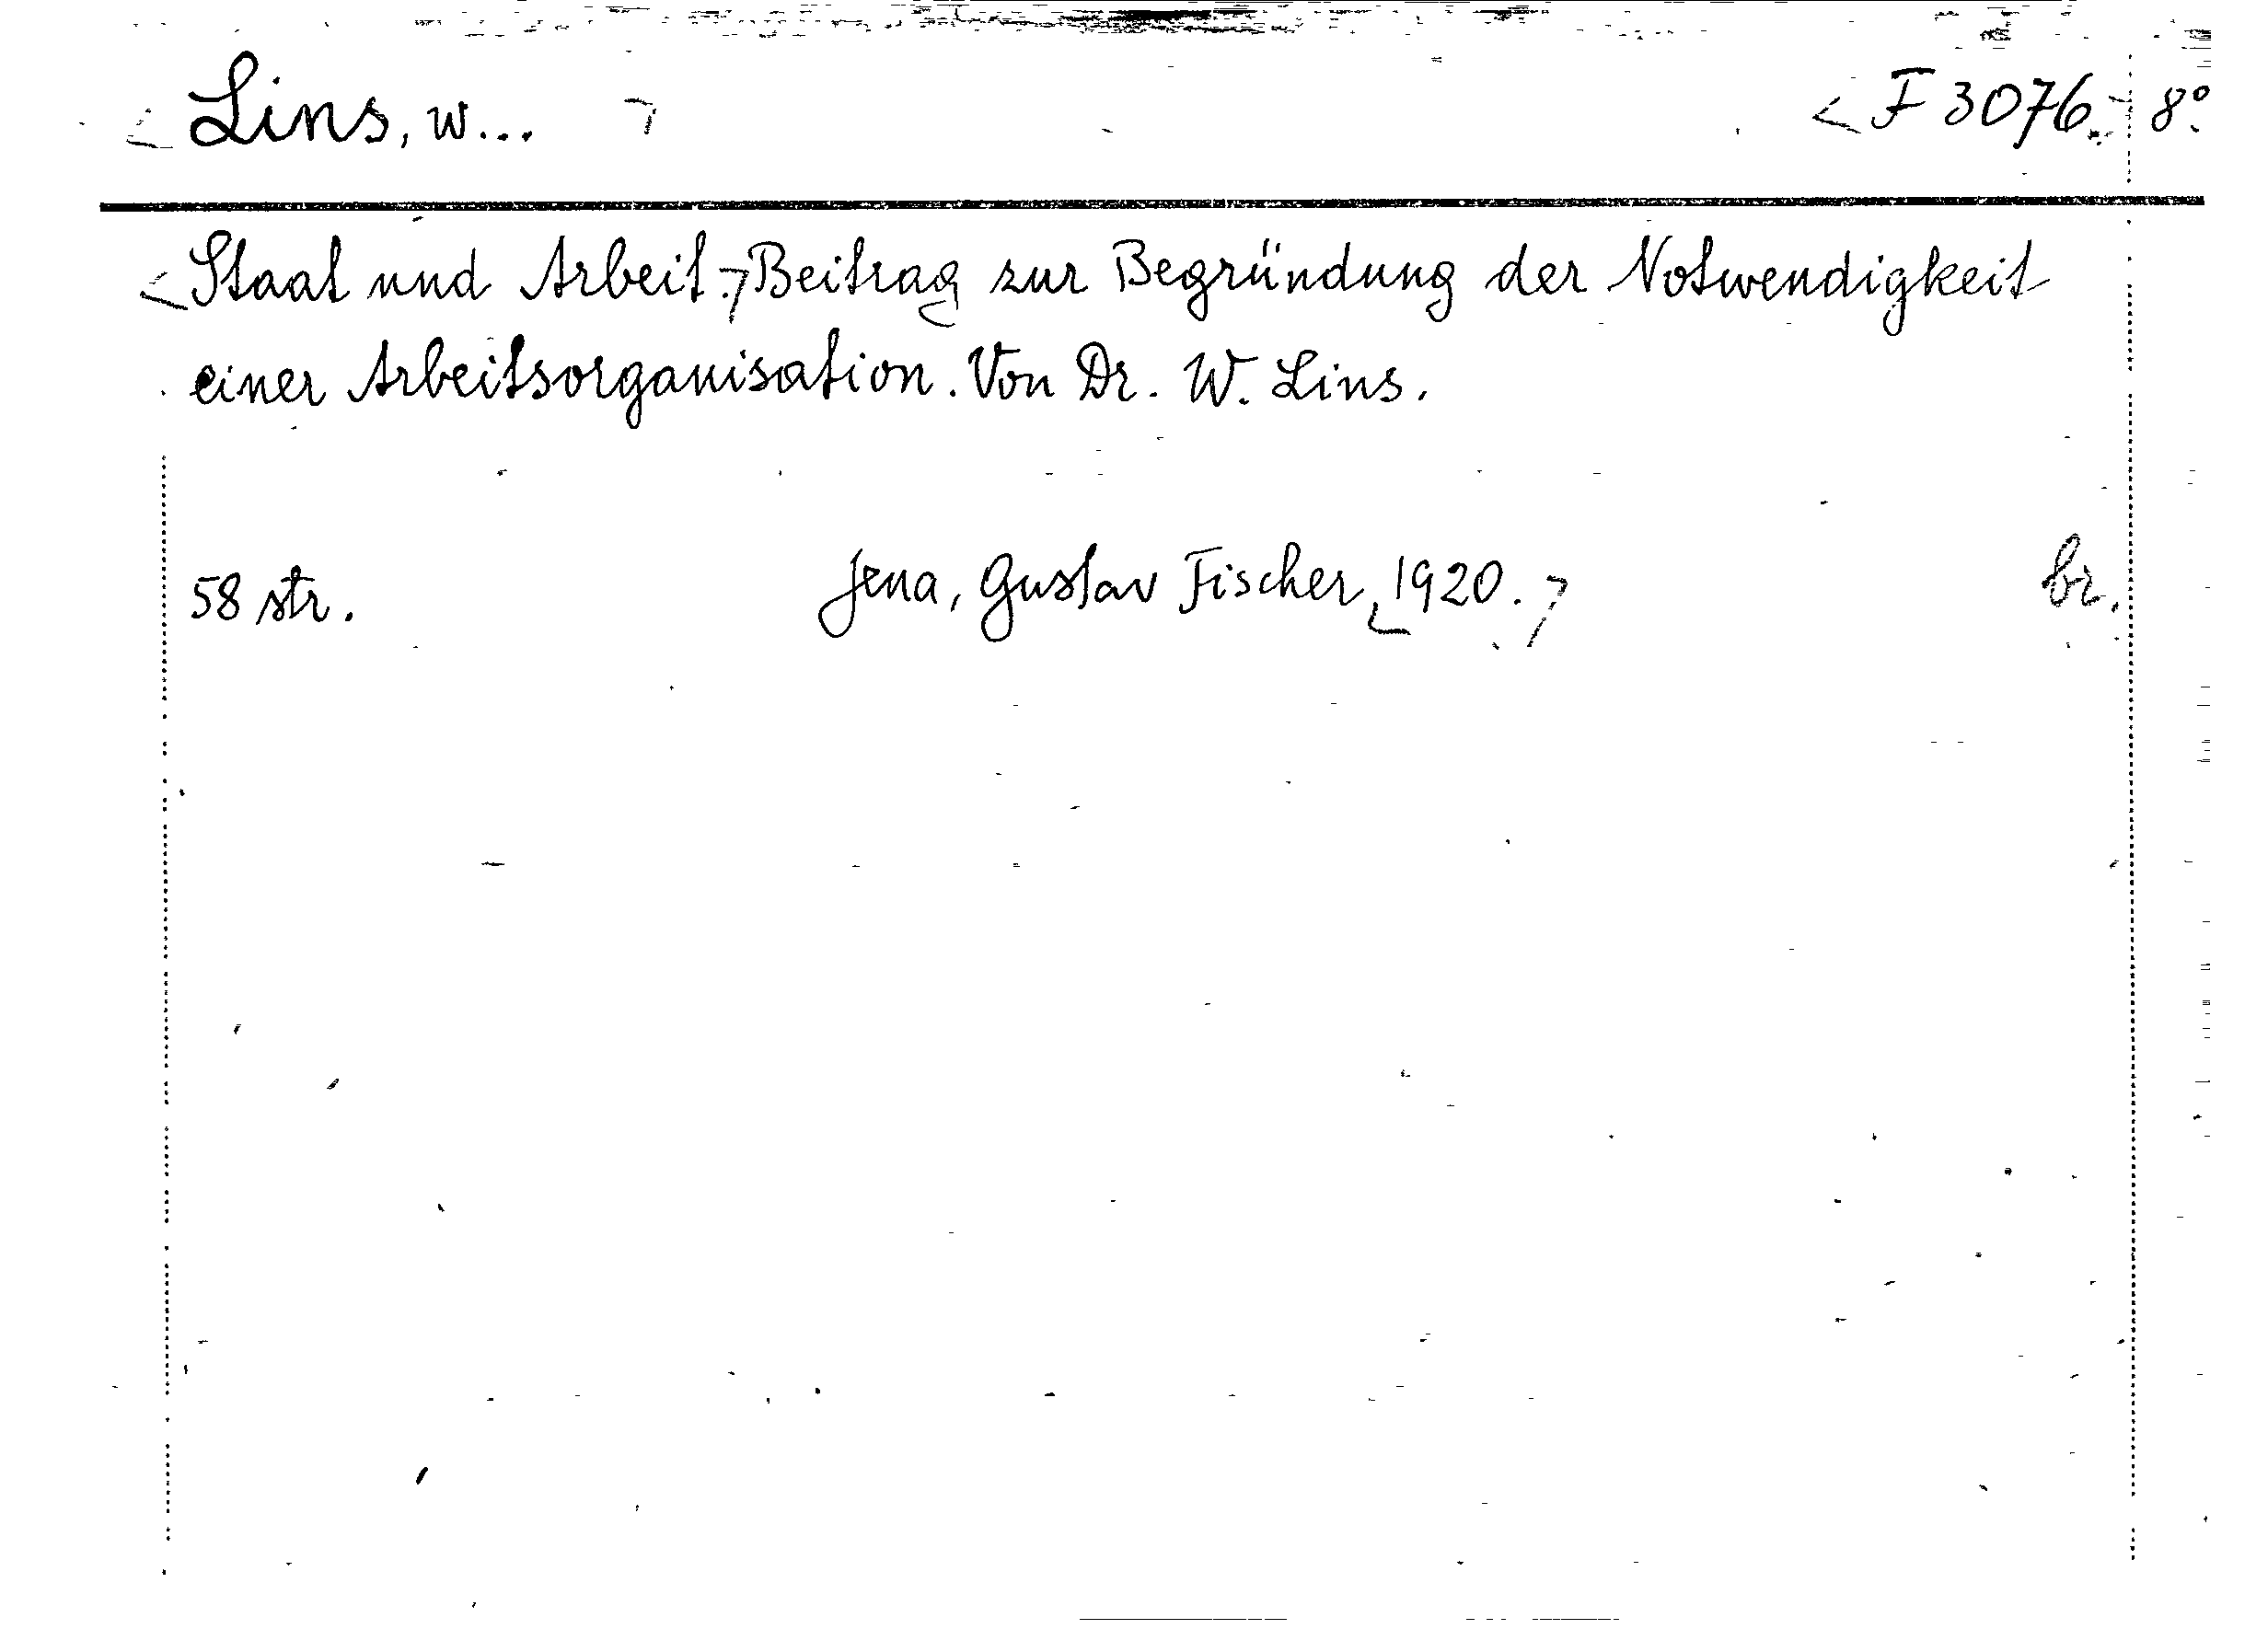 Lins, W...
F 3076. 8°.
Staat und Arbeit. Beitrag zur Begründung der Notwendigkeit
einer Arbeitsorganisation. Von Dr. W. Lins.
58 str. Jena, Gustav Fischer, 1920. br.